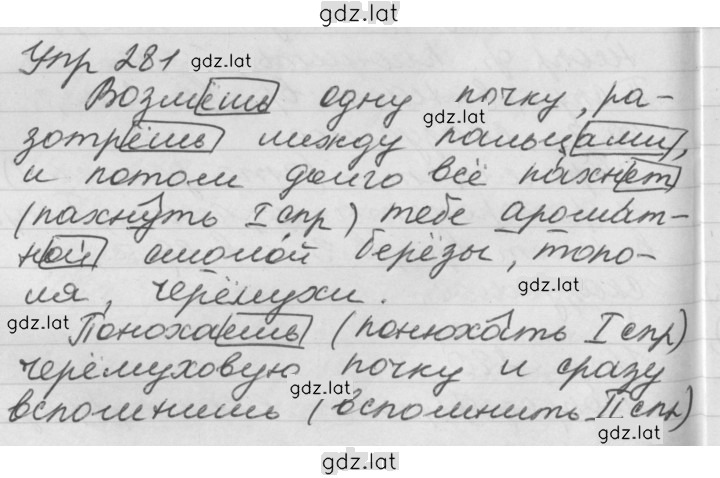 gdz.lat
Упр 281 gdz.lat
Возмёшь одну почку, ра-
gdz.lat
зотрёшь между пальцами,
и потом долго всё пахнет
(пахнуть I спр) тебе аромат-
ной смолой берёзы, топо-
gdz.lat
ля, черёмухи.
gdz.lat
Понюхаешь (понюхать I спр)
черёмуховую почку и сразу
gdz.lat
вспомнишь (вспомнить II спр)
gdz.lat
gdz.lat